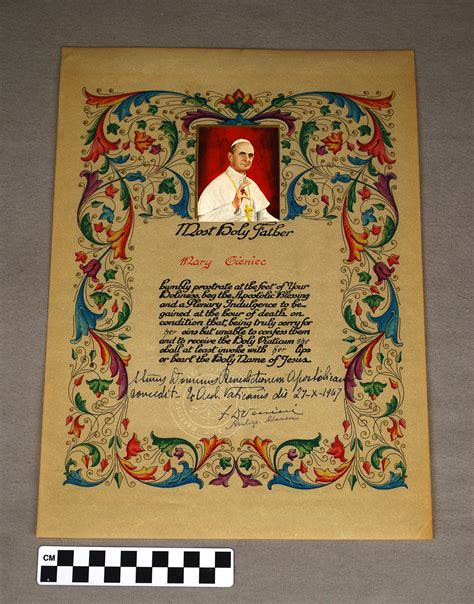 Most Holy Father
Mary Cieniec
humbly prostrate at the feet of Your
Holiness, beg the Apostolic Blessing
and a Plenary Indulgence to be
gained at the hour of death, on
condition that, being truly sorry for
her sins but unable to confess them
and to receive the Holy Viaticum she
shall at least invoke with her lips
or heart the Holy Name of Jesus.
Dominus Benedictionem Apostolicam
Aed. Vaticanis die 27-X-1967
CM